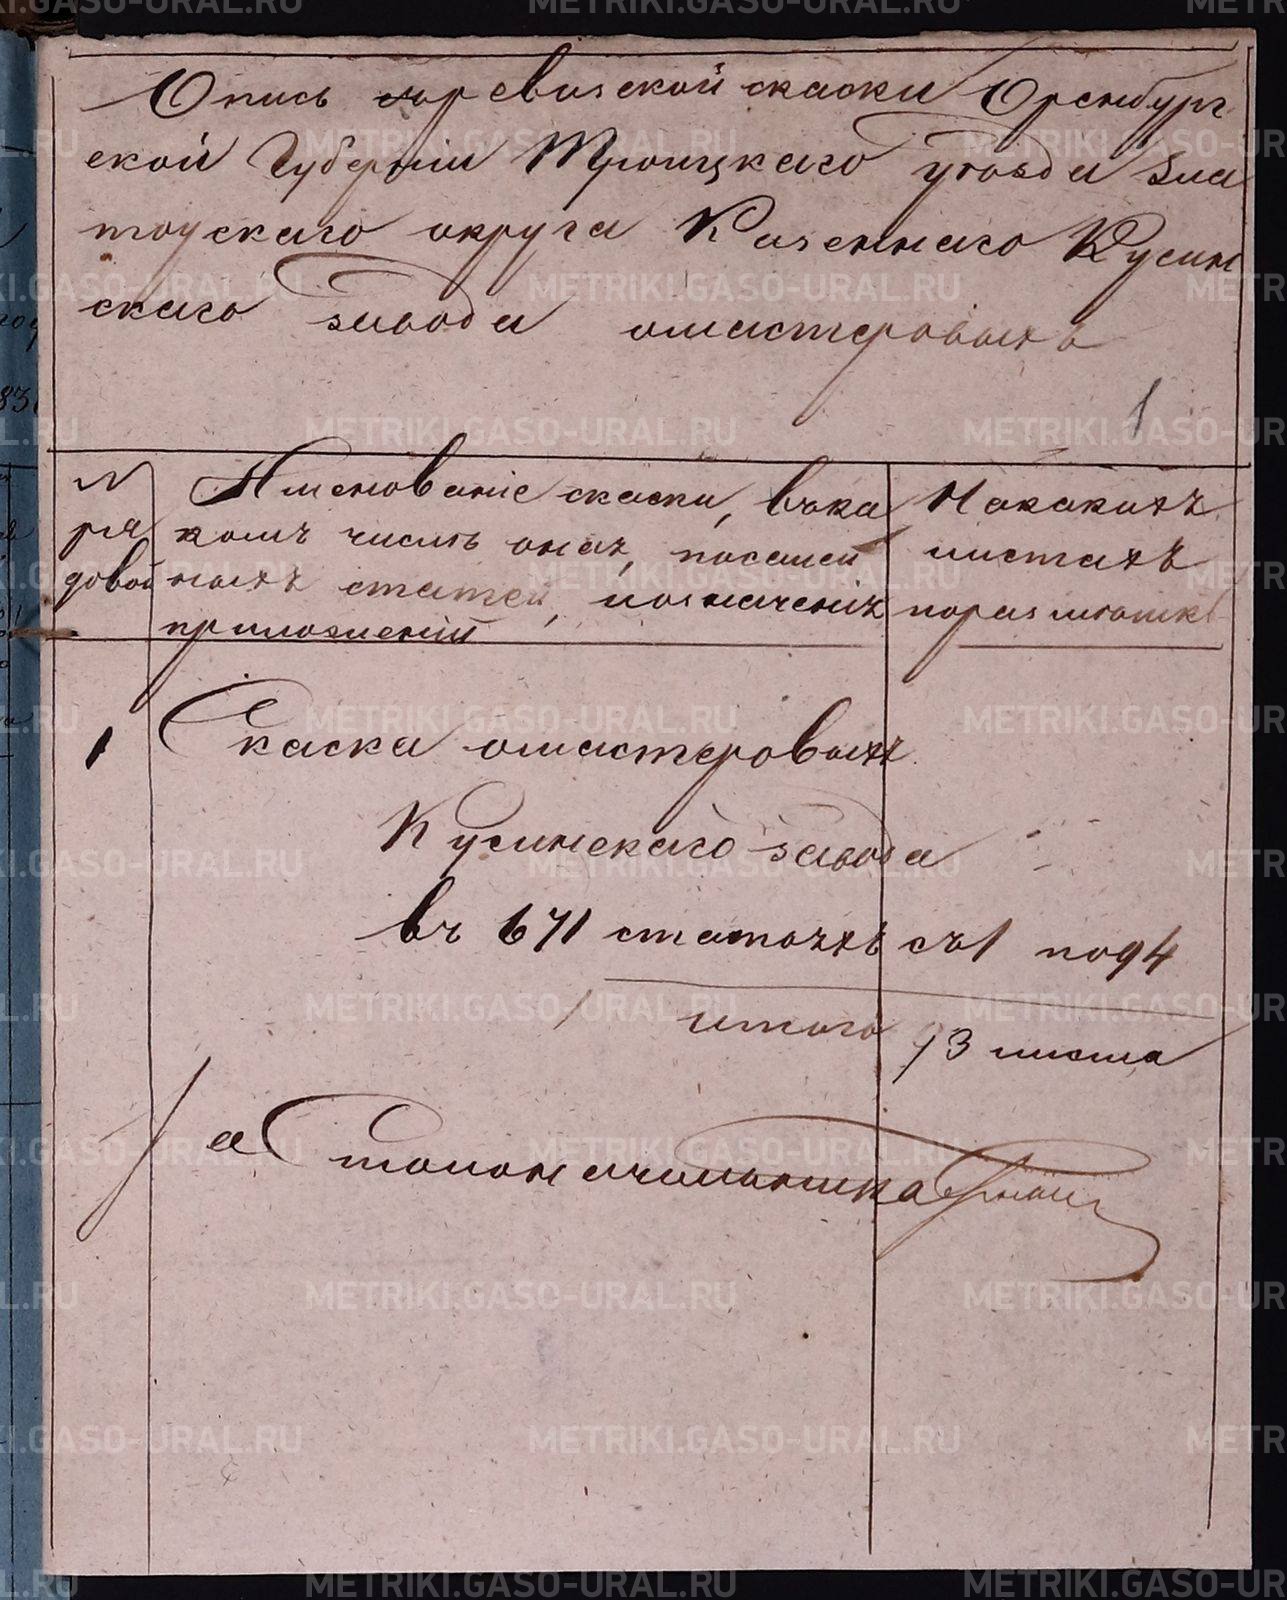 Опись ревизской скаски Оренбург
ской Губерніи Троицкаго уѣзда Зла
тоускаго округа Казеннаго Кусин
скаго завода омастеровыхъ
1
№
ря
довой
Именованіе скаски, въка
комъ числѣ оная, посемей
ныхъ статей, иозначеніе
приложеній
Накакихъ
листахъ
поразмѣткѣ
1 Скаска омастеровыхъ
Кусинскаго завода
въ 671 статьяхъ съ1 по94
итого 93 листа
За Столоначальника
METRIKI.GASO-URAL.RU